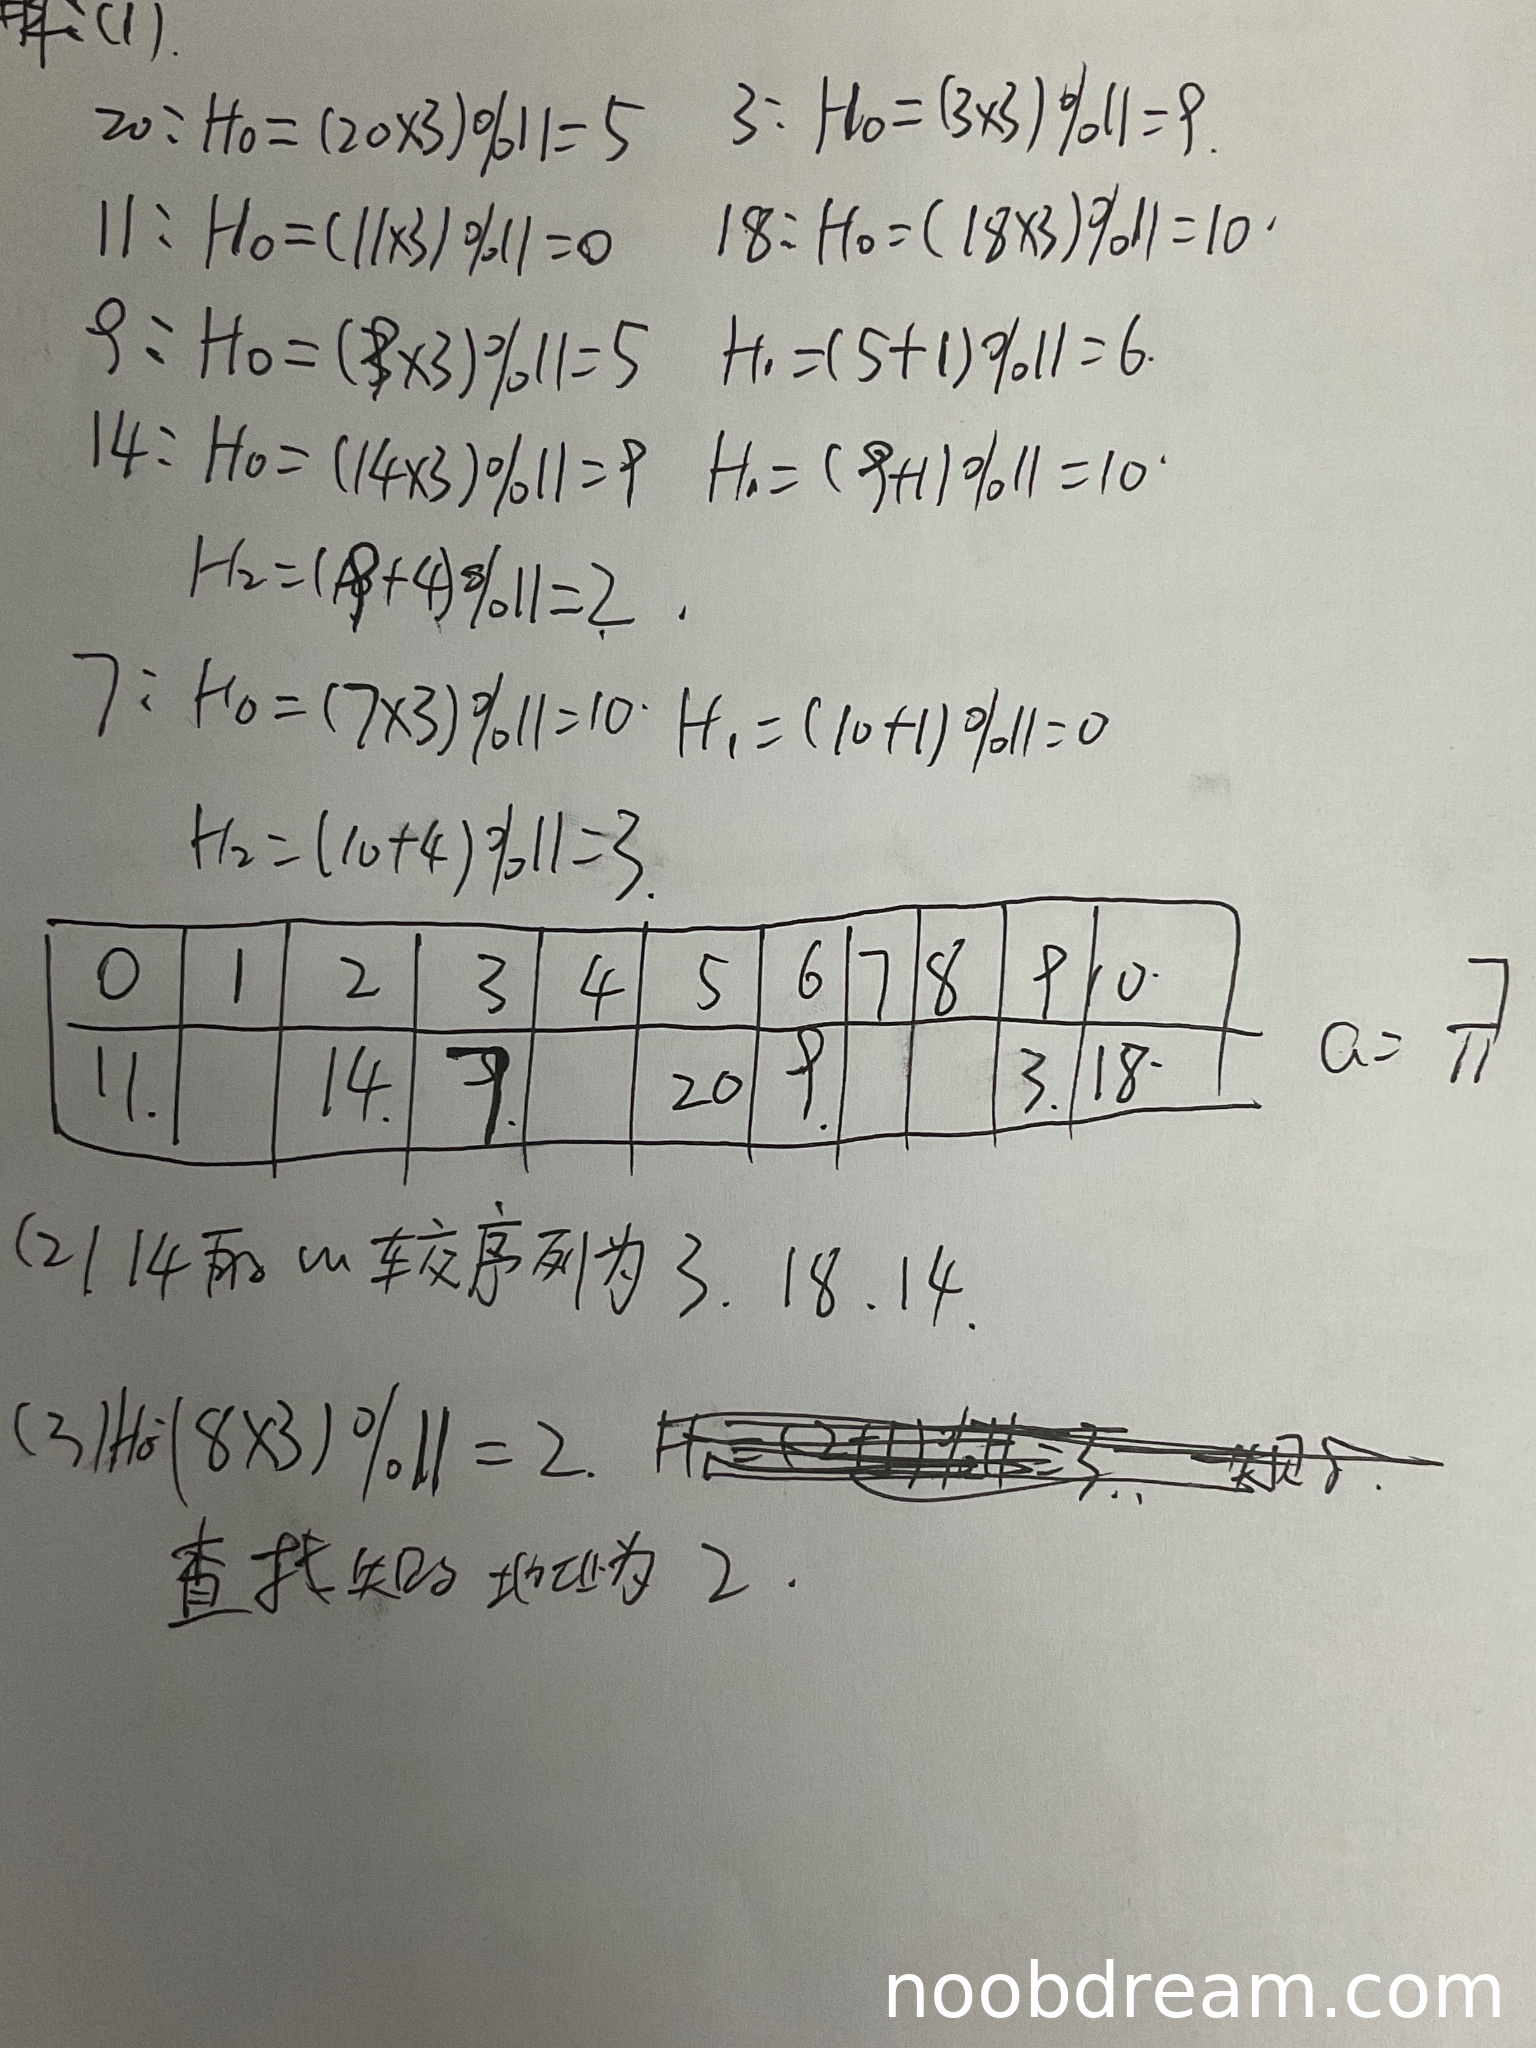 解:(1).
20: H0=(20×3)%11=5 3: H0=(3×3)%11=9.
11: H0=(11×3)%11=0 18: H0=(18×3)%11=10.
9: H0=(9×3)%11=5 H1=(5+1)%11=6.
14: H0=(14×3)%11=9 H1=(9+1)%11=10.
H2=(9+4)%11=2.
7: H0=(7×3)%11=10. H1=(10+1)%11=0
H2=(10+4)%11=3.
0 1 2 3 4 5 6 7 8 9 10.
11. 14. 7. 20 9. 3. 18.
a= 7/11
(2) 14的 比较序列为 3. 18. 14.
(3) H0=(8×3)%11=2.
查找失败 地址为 2.
noobdream.com